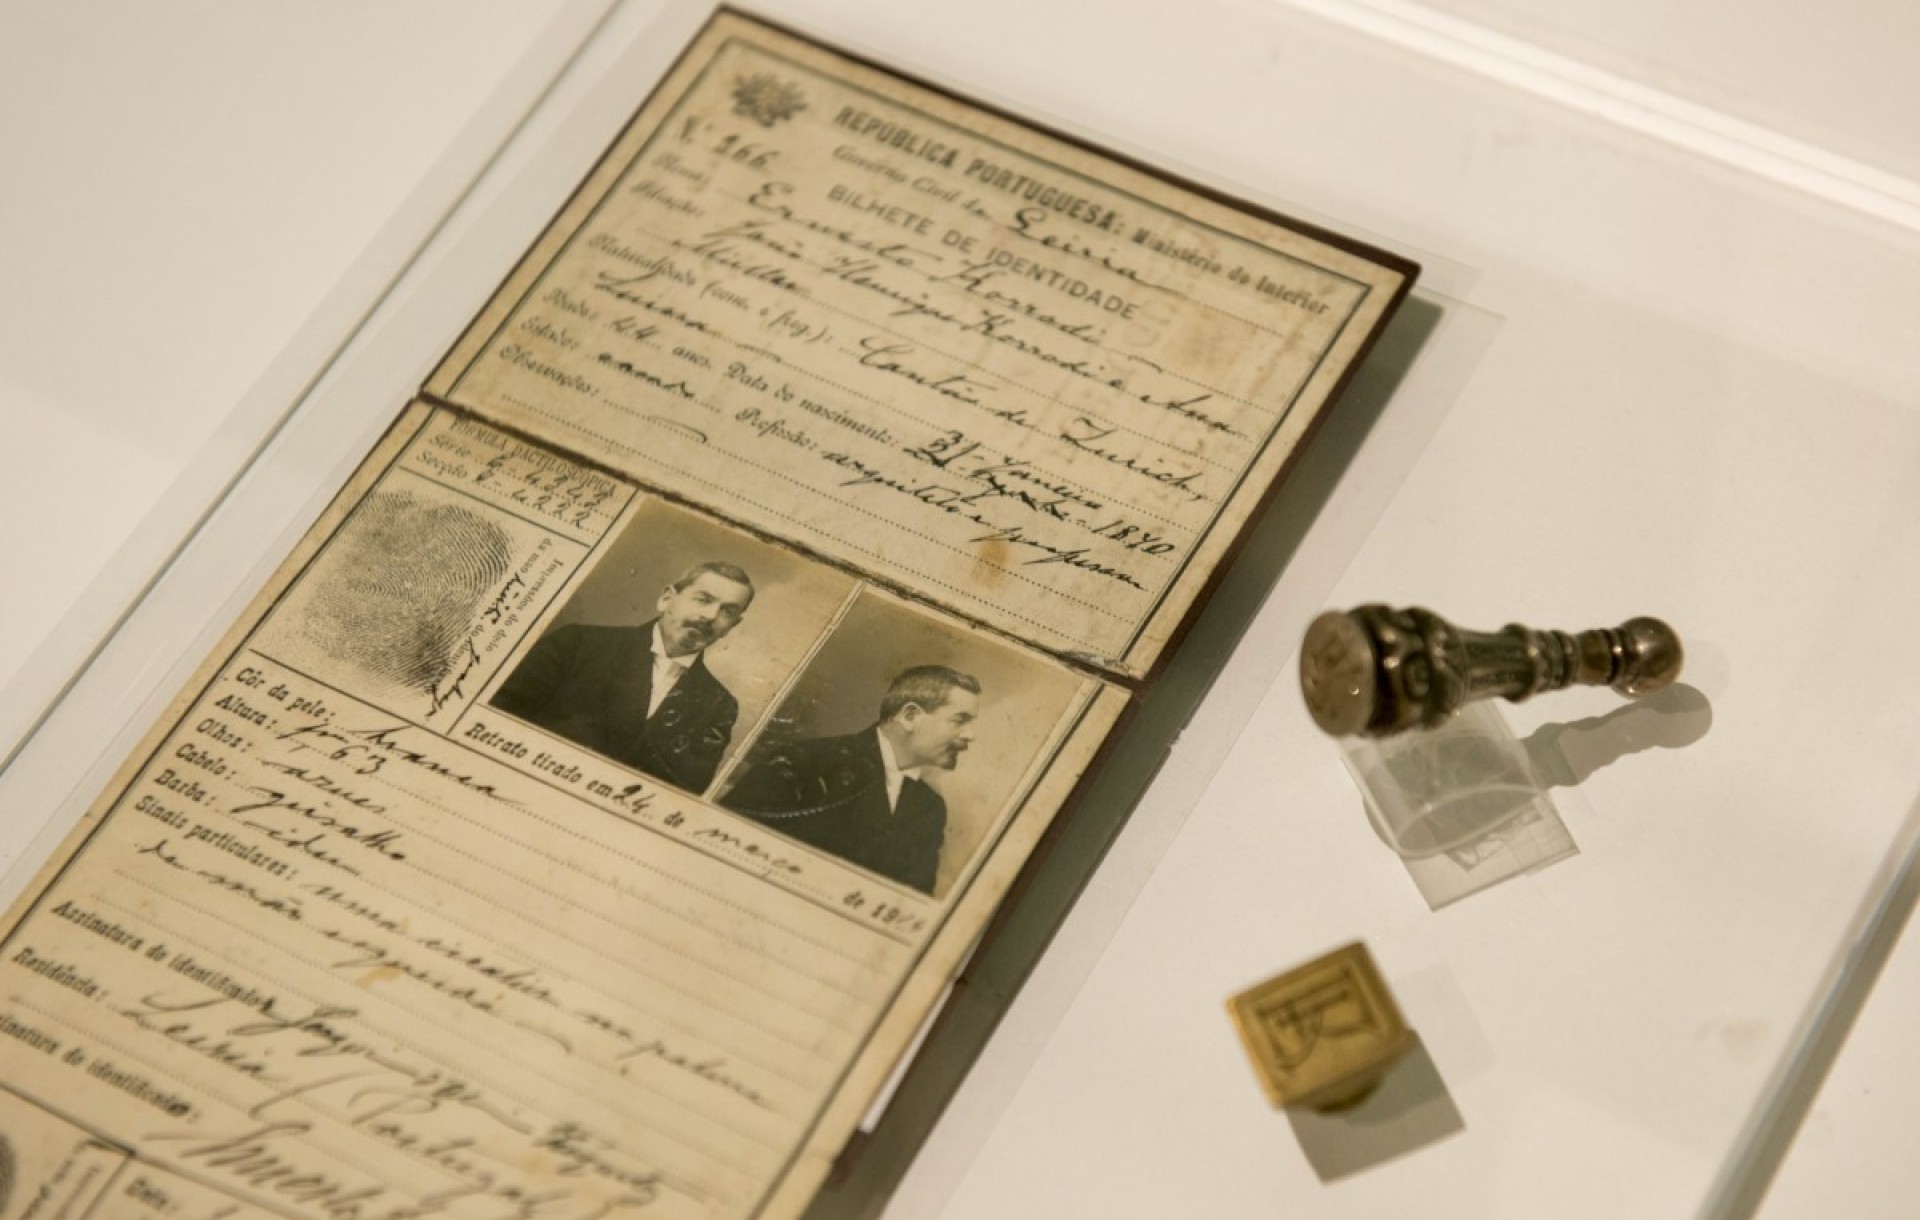 REPÚBLICA PORTUGUESA: Ministério do Interior
N.º 266 Governo Civil de Leiria
BILHETE DE IDENTIDADE
Nome: Ernesto Korrodi
Filiação: João Henrique Korrodi e Ana
Müller
Naturalidade (conc. e freg.): Cantão de Zurich,
Suissa
Idade: 44 anos. Data do nascimento: 31 Janeiro 1870
Estado: casado Profissão: arquiteto e professor
Observações:
FORMULA DACTILOSCOPICA
Série E-4343
Secção I-4222
Impressões do dedo
da mão do
Retrato tirado em 24 de março de 1914
Côr da pele: branca
Altura: 1m 63
Olhos: azues
Cabelo: grisalho
Barba: idem
Sinais particulares: uma cicatriz na palma
da mão esquerda
Assinatura do identificador
Residência: Leiria (Portugal)
Assinatura do identificado: Ernesto
Data: